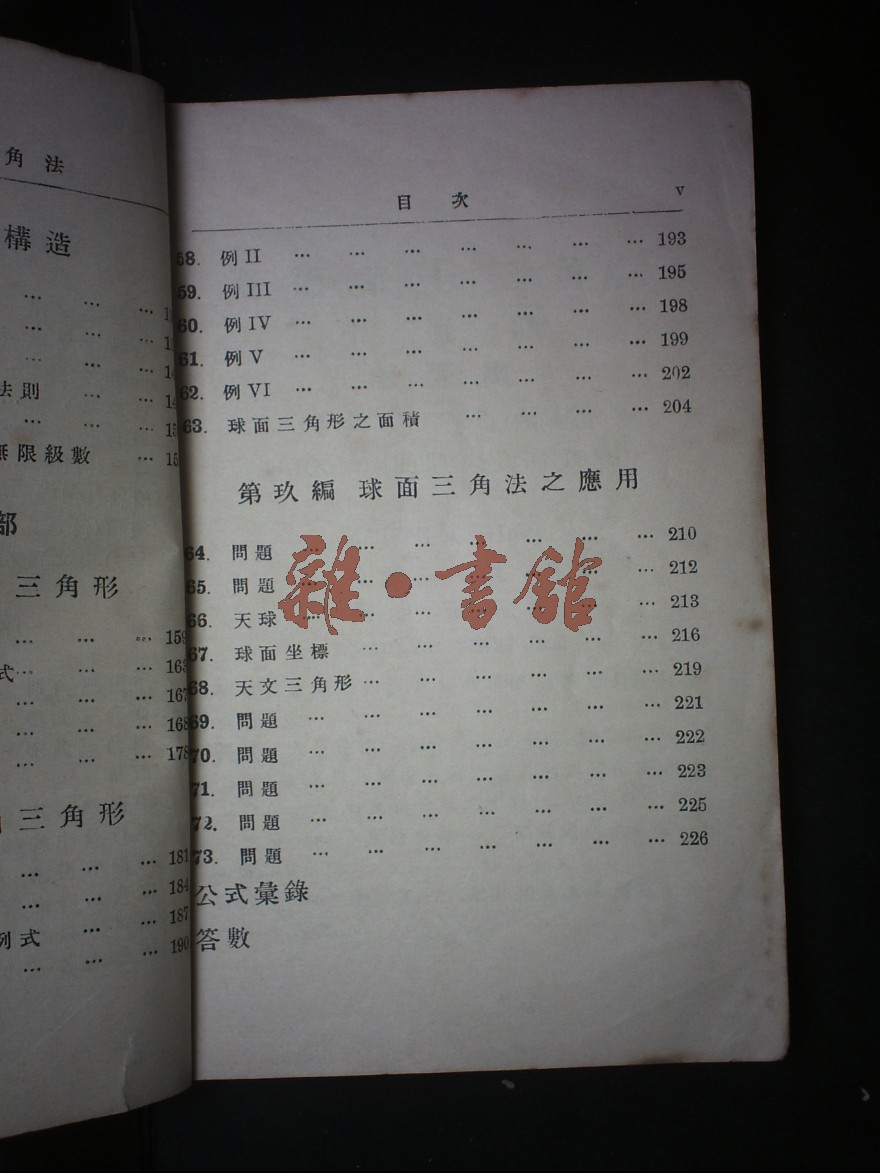 角法
構造
法則
無限級數
部
三角形
… … … 159
式… … … 163
… … … 167
… … … 168
… … … 178
三角形
… … … 181
… … … 184
… … … 187
例式 … … … 190
目 次 v
58. 例 II … … … … … … … 193
59. 例 III … … … … … … … 195
60. 例 IV … … … … … … … 198
61. 例 V … … … … … … … 199
62. 例 VI … … … … … … … 202
63. 球面三角形之面積 … … … … 204
第玖編 球面三角法之應用
64. 問題 … … … … … … … 210
65. 問題 … … … … … … … 212
66. 天球 … … … … … … … 213
67. 球面坐標 … … … … … … 216
68. 天文三角形 … … … … … … 219
69. 問題 … … … … … … … 221
70. 問題 … … … … … … … 222
71. 問題 … … … … … … … 223
72. 問題 … … … … … … … 225
73. 問題 … … … … … … … 226
公式彙錄
答數
雜·書館